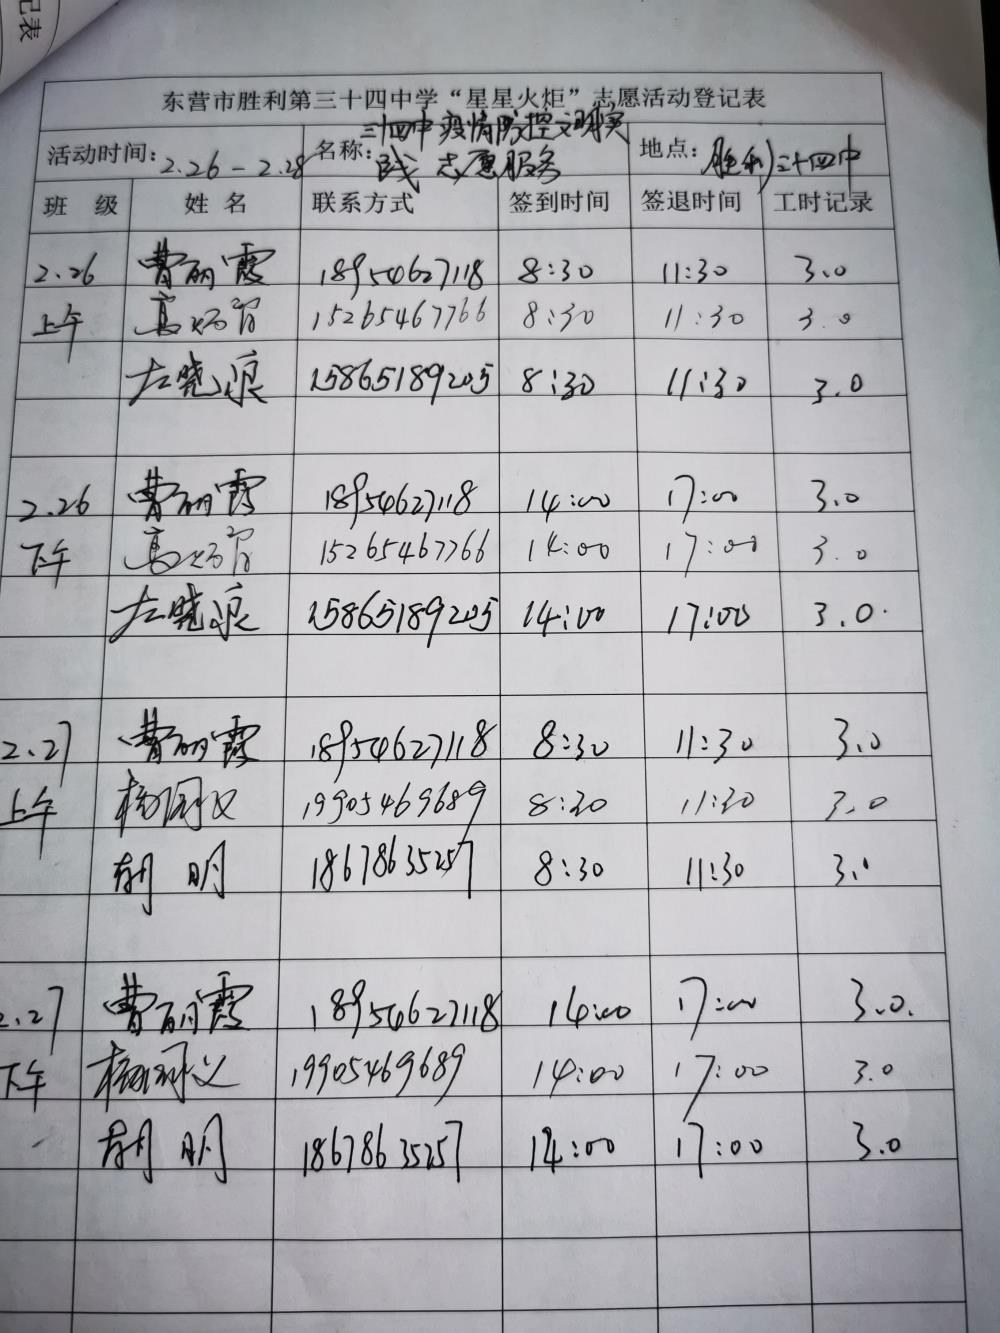 记表
东营市胜利第三十四中学“星星火炬”志愿活动登记表
活动时间：2.26-2.28 名称：三十四中疫情防控文明实践志愿服务 地点：胜利三十四中
班 级 姓 名 联系方式 签到时间 签退时间 工时记录
2.26 曹丽霞 18954627118 8:30 11:30 3.0
上午 高 15265467766 8:30 11:30 3.0
左晓 15865189205 8:30 11:30 3.0
2.26 曹丽霞 18954627118 14:00 17:00 3.0
下午 高 15265467766 14:00 17:00 3.0
左晓 15865189205 14:00 17:00 3.0
2.27 曹丽霞 18954627118 8:30 11:30 3.0
上午 19905469689 8:30 11:30 3.0
胡明 18678635257 8:30 11:30 3.0
2.27 曹丽霞 18954627118 14:00 17:00 3.0.
下午 19905469689 14:00 17:00 3.0
胡明 18678635257 14:00 17:00 3.0